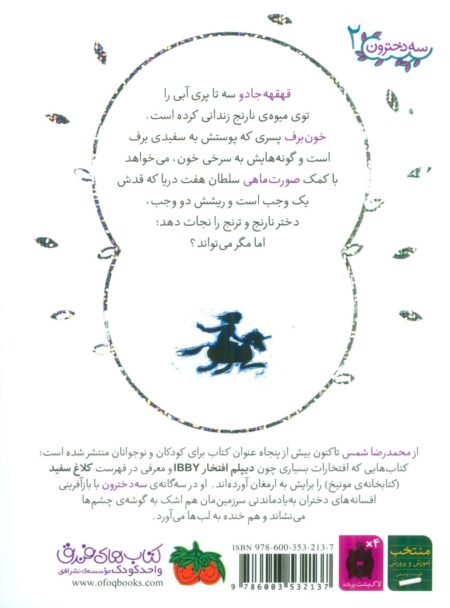 سه‌دخترون ۲
قهقهه‌جادو سه تا پری آبی را
توی میوه‌ی نارنج زندانی کرده است.
خون‌برف پسری که پوستش به سفیدی برف
است و گونه‌هایش به سرخی خون، می‌خواهد
با کمک صورت‌ماهی سلطان هفت دریا که قدش
یک وجب است و ریشش دو وجب،
دختر نارنج و ترنج را نجات دهد؛
اما مگر می‌تواند؟
از محمدرضا شمس تاکنون بیش از پنجاه عنوان کتاب برای کودکان و نوجوانان منتشر شده است؛
کتاب‌هایی که افتخارات بسیاری چون دیپلم افتخار IBBY و معرفی در فهرست کلاغ سفید
(کتابخانه‌ی مونیخ) را برایش به ارمغان آورده‌اند. او در سه‌گانه‌ی سه‌دخترون با بازآفرینی
افسانه‌های دختران به‌یادماندنی سرزمین‌مان هم اشک به گوشه‌ی چشم‌ها
می‌نشاند و هم خنده به لب‌ها می‌آورد.
منتخب
آموزش و پرورش
۴×
لاک‌پشت پرنده
ISBN 978-600-353-213-7
9 786003 532137
کتاب‌های فندق
واحد کودک مؤسسه‌ی نشر افق
www.ofoqbooks.com